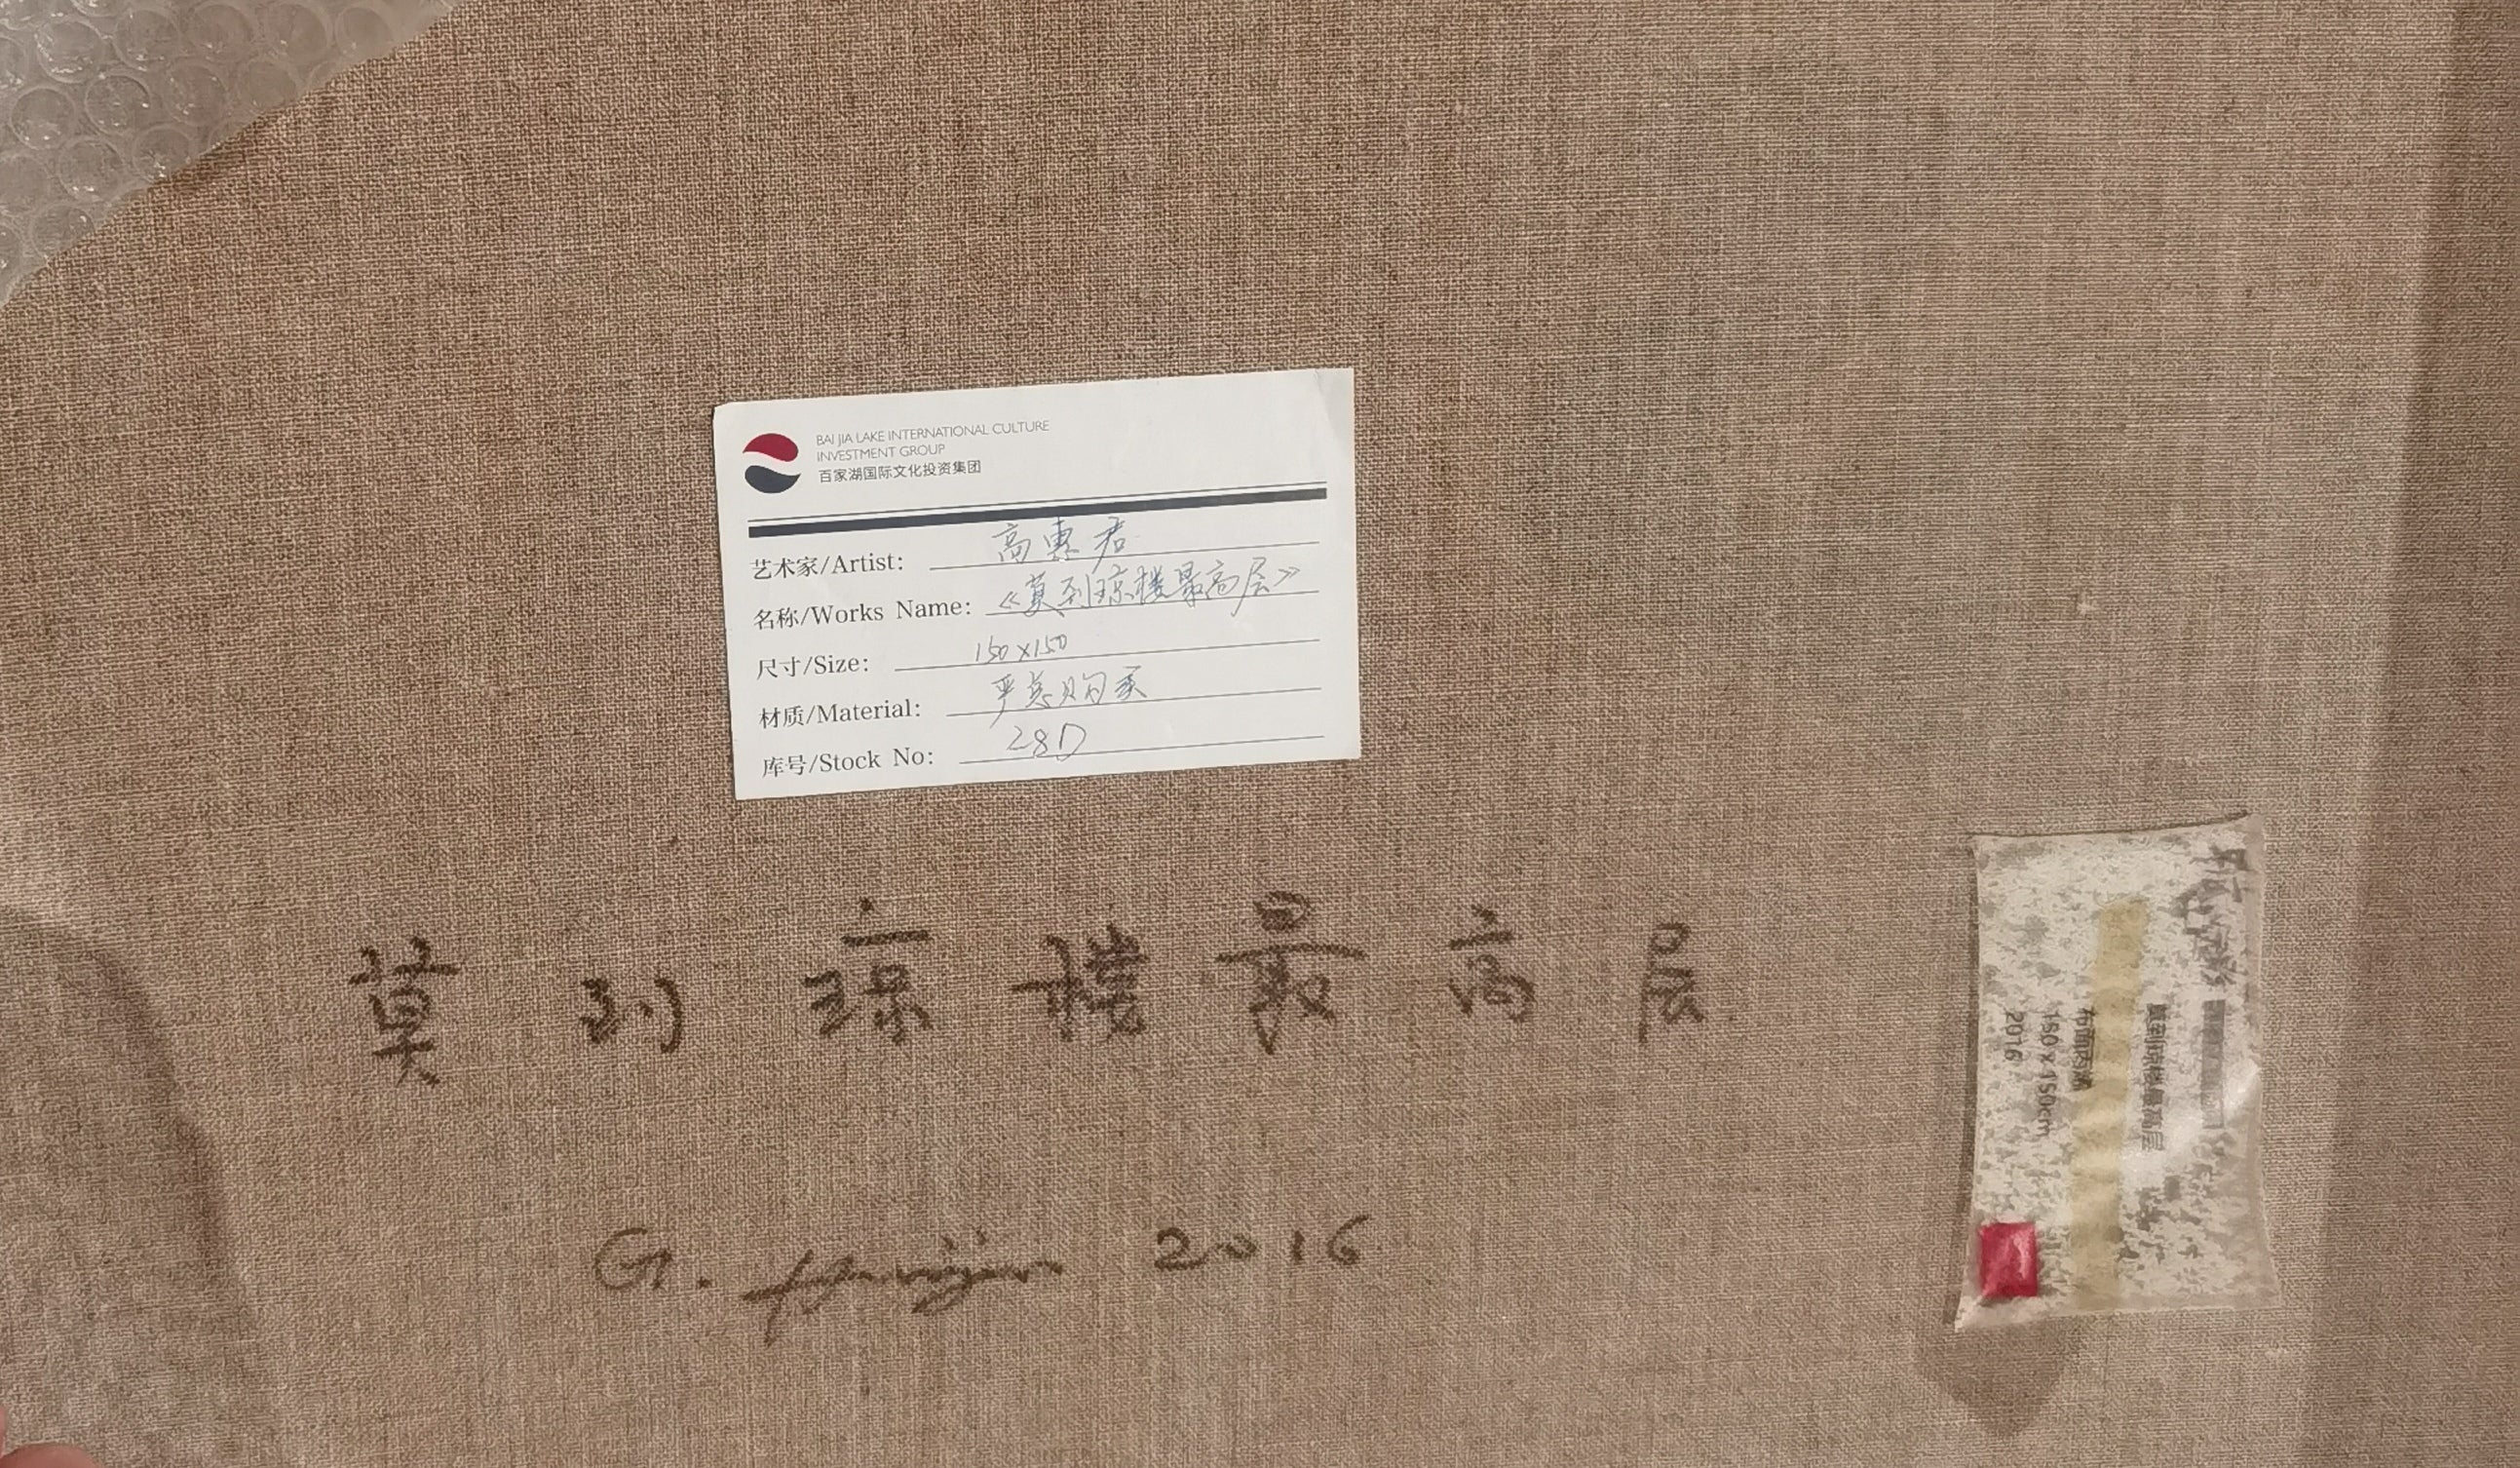 BAI JIA LAKE INTERNATIONAL CULTURE
INVESTMENT GROUP
百家湖国际文化投资集团
艺术家/Artist: 高惠君
名称/Works Name: 《莫到琼楼最高层》
尺寸/Size: 150x150
材质/Material: 严总购买
库号/Stock No: 28D
莫到琼楼最高层
G. 2016
莫到琼楼最高层
布面丙烯
150 x 150cm
2016